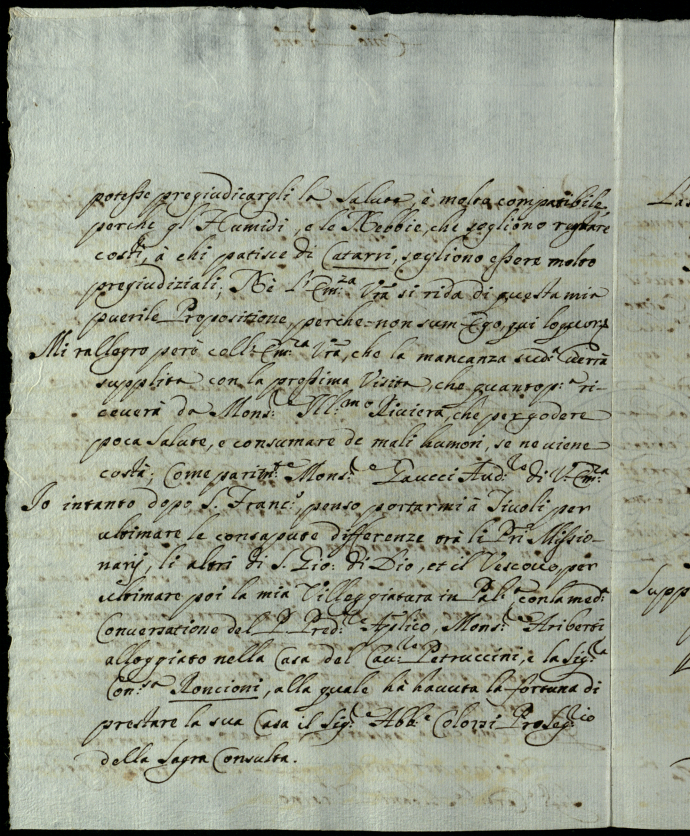 potesse pregiudicargli la Salute, è molto compatibile,
perche gl'Humidi, e le Nebbie, che sogliono regnare
costì, à chi patisce di Catarri, sogliono essere molto
pregiudiziali; Nè l'Em:za Vrã si rida di questa mia
puerile Proposizione, perche non sum Ego, qui loquor;
Mi rallegro però coll'Em:za Vrã, che la mancanza sud:a verrà
supplita con la prossima Visita, che quanto p:a ri-
ceverà da Mons:e Ill:mo Riviera, che per godere
poca Salute, e consumare de mali humori, se ne viene
costì; Come parim:te Mons:e Aud:re di V. Em:za
Io intanto dopo S. Franc:o, penso portarmi à Tivoli per
ultimare le consapute differenze trà li Pri Missio-
narij, li altri di S. Gio: di Dio, et il Vescovo, per
ultimare poi la mia Villeggiatura in Pal:a con la med:a
Conversatione del P. Pred:re Aplico, Mons:e Ariberti
alloggiato nella Casa del Cau:re Petruccini, e la Sig:ra
Con:sa Roncioni, alla quale hà havuta la fortuna di
prestare la sua Casa il Sig:e Abb:e Colozzi Proseg:rio
della Sagra Consulta.